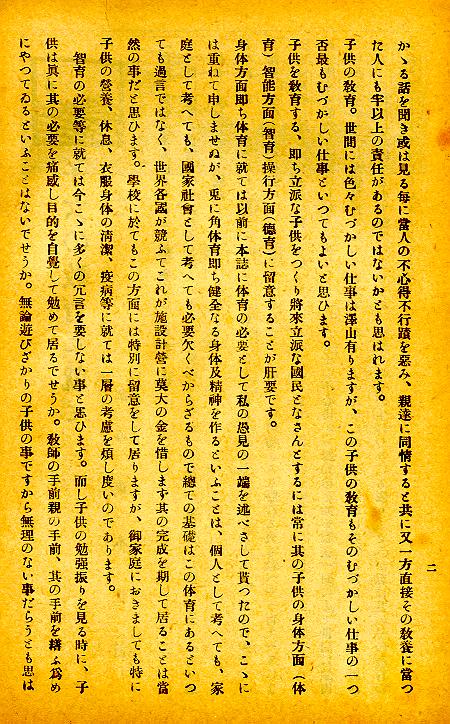 かゝる話を聞き或は見る每に當人の不心得不行蹟を惡み、親達に同情すると共に又一方直接その敎養に當つ
た人にも半以上の責任があるのではないかとも思はれます。
子供の敎育。世間には色々むづかしい仕事は澤山有りますが、この子供の敎育もそのむづかしい仕事の一つ
否最もむづかしい仕事といつてもよいと思ひます。
子供を敎育する、卽ち立派な子供をつくり將來立派な國民となさんとするには常に其の子供の身体方面（体
育）智能方面（智育）操行方面（德育）に留意することが肝要です。
身体方面卽ち体育に就ては以前に本誌に体育の必要として私の愚見の一端を述べさして貰つたので、こゝに
は重ねて申しませぬが、兎に角体育卽ち健全なる身体及精神を作るといふことは、個人として考へても、家
庭として考へても、國家社會として考へても必要欠くべからざるもので總ての基礎はこの体育にあるといつ
ても過言ではなく、世界各國が競ふてこれが施設計營に莫大の金を惜します其の完成を期して居ることは當
然の事だと思ひます。學校に於てもこの方面には特別に留意をして居りますが、御家庭におきましても特に
子供の營養、休息、衣服身体の淸潔、疫病等に就ては一層の考慮を煩し度いのであります。
智育の必要等に就ては今こゝに多くの冗言を要しない事と思ひます。而し子供の勉强振りを見る時に、子
供は眞に其の必要を痛感し目的を自覺して勉めて居るでせうか。敎師の手前親の手前、其の手前を繕ふ爲め
にやつてゐるといふことはないでせうか。無論遊びざかりの子供の事ですから無理のない事だらうとも思は
二